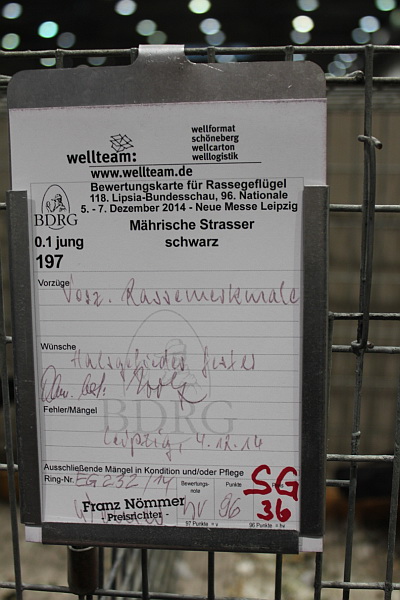 wellteam:
wellformat
schöneberg
wellcarton
welllogistik
www.wellteam.de
BDRG
Bewertungskarte für Rassegeflügel
118. Lipsia-Bundesschau, 96. Nationale
5. - 7. Dezember 2014 - Neue Messe Leipzig
0.1 jung
Mährische Strasser
schwarz
197
Vorzüge
Vorz. Rassemerkmale
Wünsche
Halsgefieder fester
BDRG
Fehler/Mängel
Leipzig, 4.12.14
Ausschließende Mängel in Kondition und/oder Pflege
Ring-Nr. EG 232/14
Bewertungs-
note
Punkte
Franz Nömmer
- Preisrichter -
hv 96
SG
36
97 Punkte = v
96 Punkte = hv